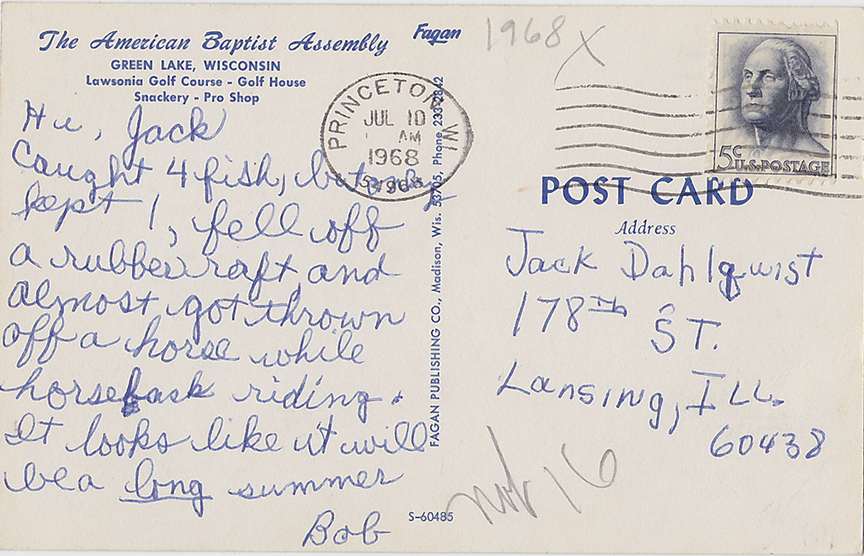 The American Baptist Assembly
GREEN LAKE, WISCONSIN
Lawsonia Golf Course - Golf House
Snackery - Pro Shop
Fagan
1968 X
PRINCETON, WI.
JUL 10
AM
1968
5¢ U.S. POSTAGE
Hi, Jack
Caught 4 fish, but only
kept 1, fell off
a rubber raft, and
almost got thrown
off a horse while
horseback riding.
It looks like it will
be a long summer
Bob
FAGAN PUBLISHING CO., Madison, Wis. 53705, Phone 233-2842
S-60485
POST CARD
Address
Jack Dahlqwist
178TH ST.
Lansing, ILL.
60438
16